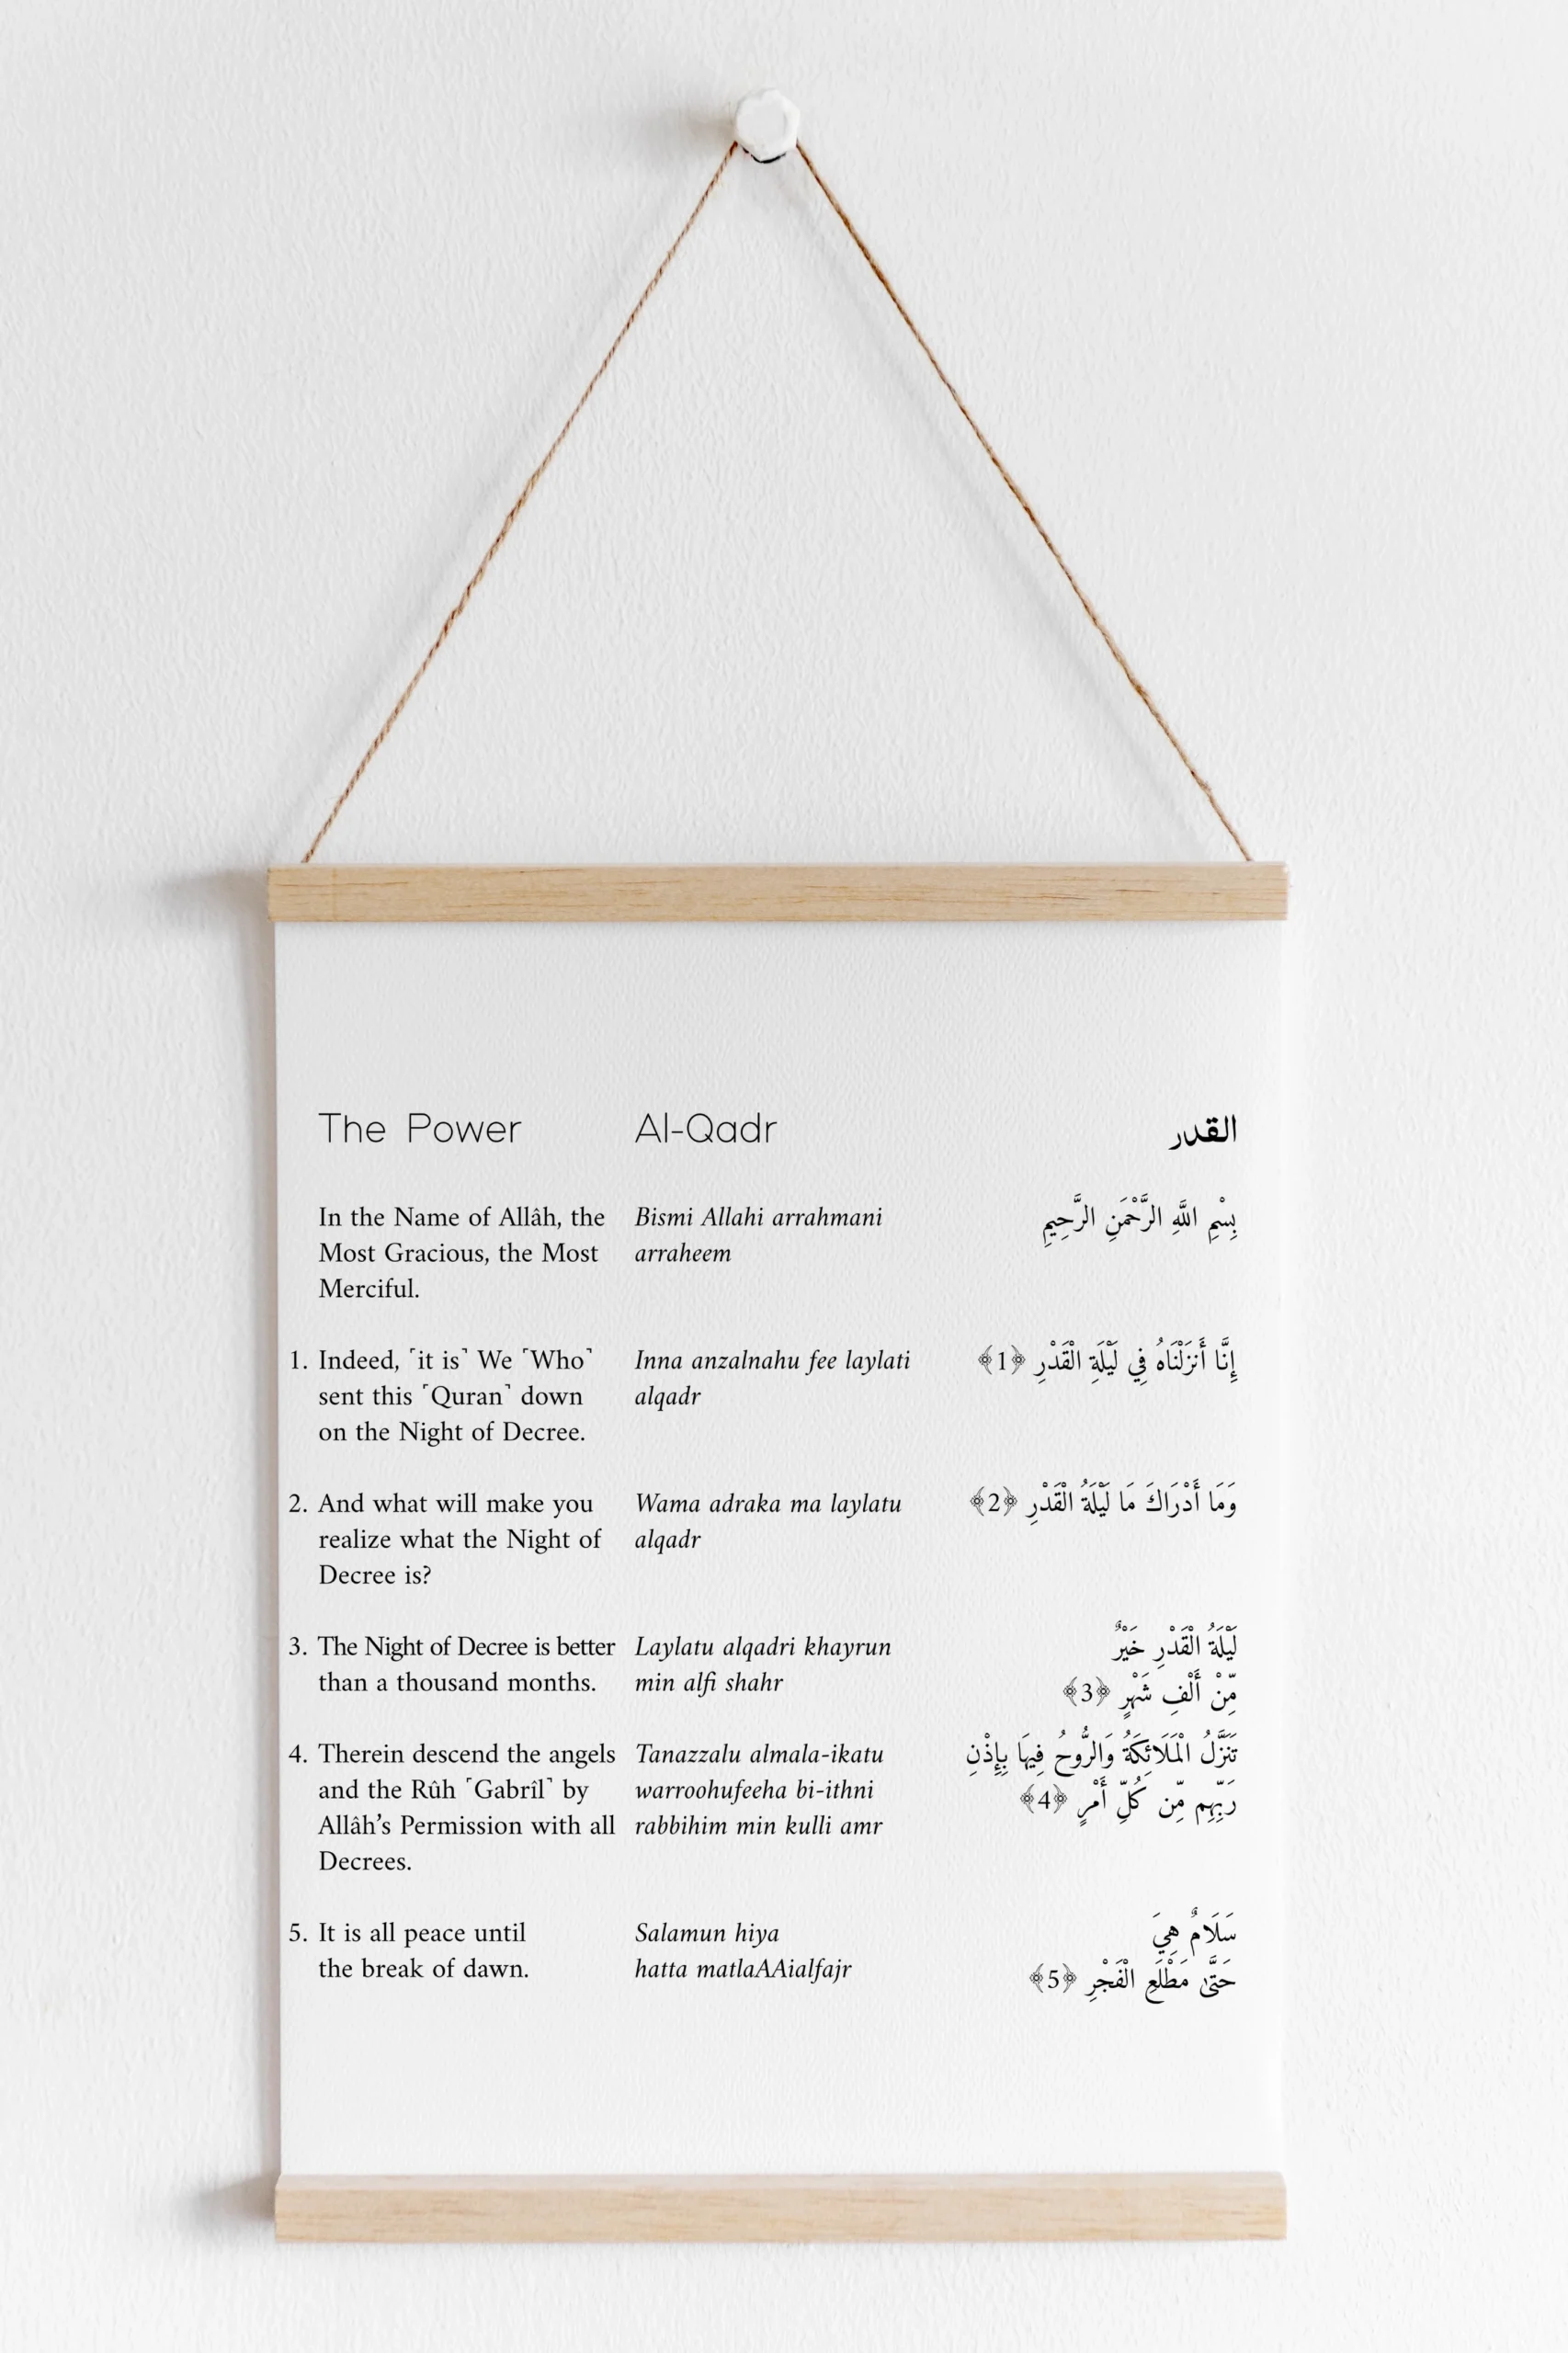 The Power
Al-Qadr
القدر
In the Name of Allâh, the
Most Gracious, the Most
Merciful.
Bismi Allahi arrahmani
arraheem
بِسْمِ اللَّهِ الرَّحْمَنِ الرَّحِيمِ
1. Indeed, ˹it is˺ We ˹Who˺
sent this ˹Quran˺ down
on the Night of Decree.
Inna anzalnahu fee laylati
alqadr
إِنَّا أَنزَلْنَاهُ فِي لَيْلَةِ الْقَدْرِ ﴿1﴾
2. And what will make you
realize what the Night of
Decree is?
Wama adraka ma laylatu
alqadr
وَمَا أَدْرَاكَ مَا لَيْلَةُ الْقَدْرِ ﴿2﴾
3. The Night of Decree is better
than a thousand months.
Laylatu alqadri khayrun
min alfi shahr
لَيْلَةُ الْقَدْرِ خَيْرٌ
مِّنْ أَلْفِ شَهْرٍ ﴿3﴾
4. Therein descend the angels
and the Rûh ˹Gabrîl˺ by
Allâh’s Permission with all
Decrees.
Tanazzalu almala-ikatu
warroohufeeha bi-ithni
rabbihim min kulli amr
تَنَزَّلُ الْمَلَائِكَةُ وَالرُّوحُ فِيهَا بِإِذْنِ
رَبِّهِم مِّن كُلِّ أَمْرٍ ﴿4﴾
5. It is all peace until
the break of dawn.
Salamun hiya
hatta matlaAAialfajr
سَلَامٌ هِيَ
حَتَّىٰ مَطْلَعِ الْفَجْرِ ﴿5﴾